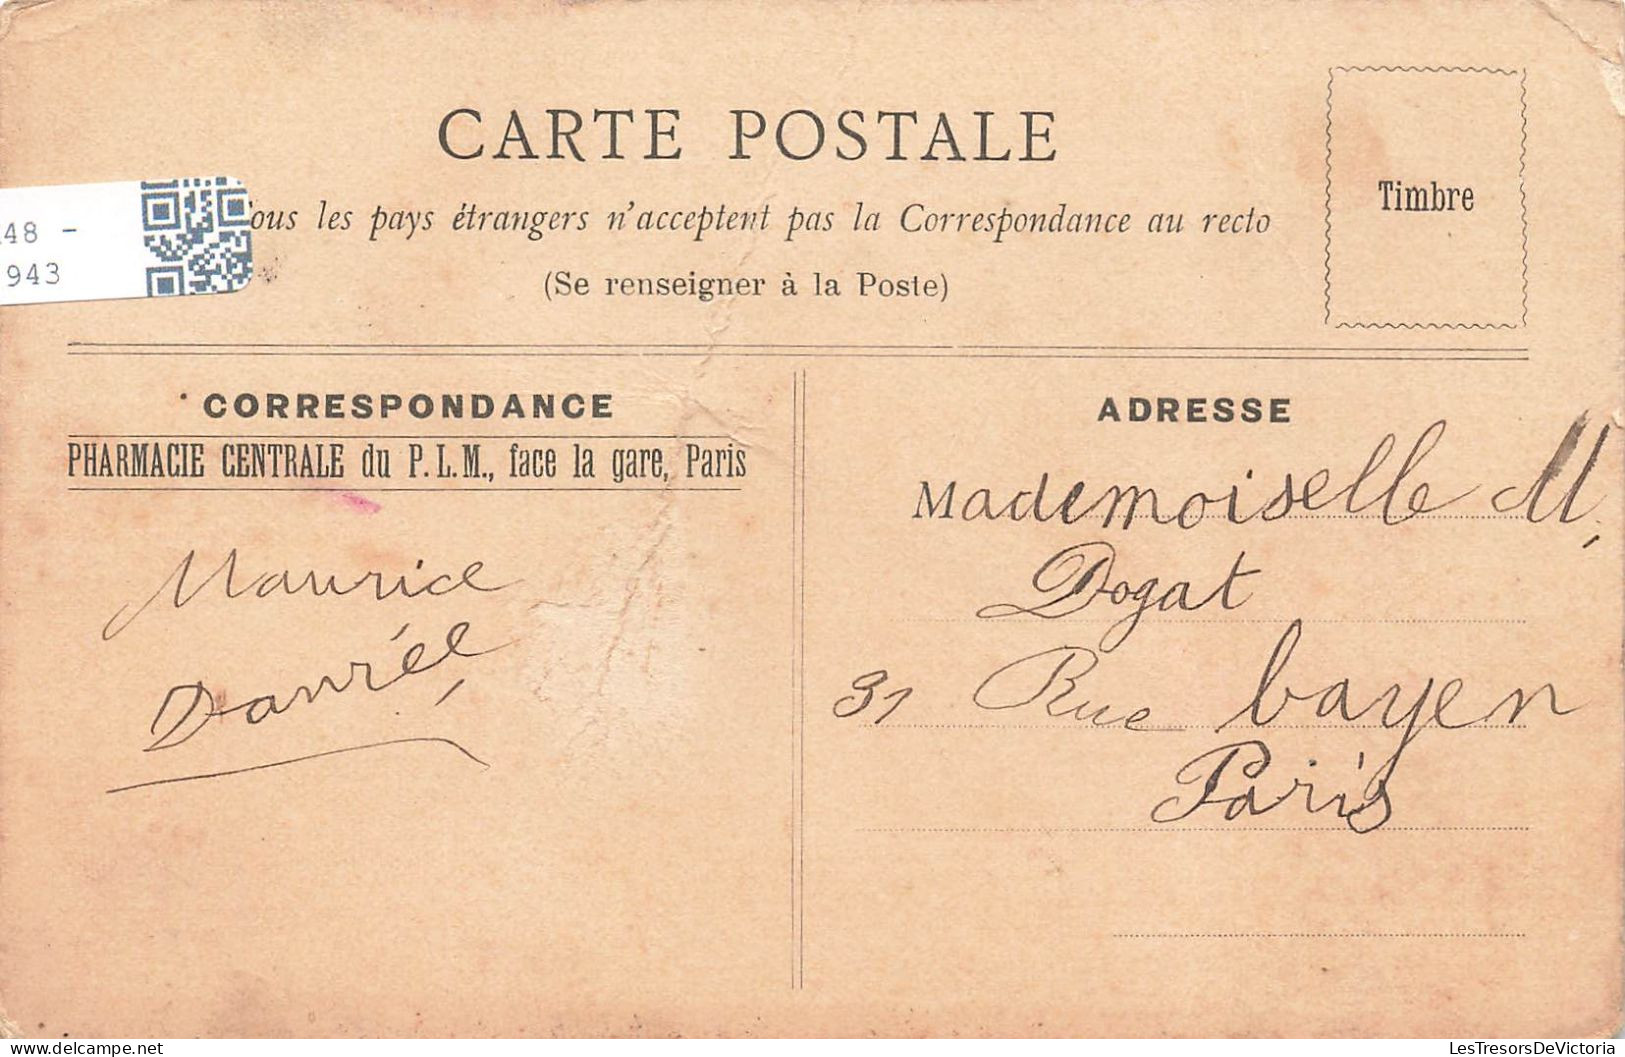 CARTE POSTALE
Timbre
48 -
943
les pays étrangers n'acceptent pas la Correspondance au recto
(Se renseigner à la Poste)
CORRESPONDANCE
ADRESSE
PHARMACIE CENTRALE du P.L.M., face la gare, Paris
Mademoiselle M.
Dogat
31 Rue bayen
Paris
Maurice
Danrée
LesTresorsDeVictoria